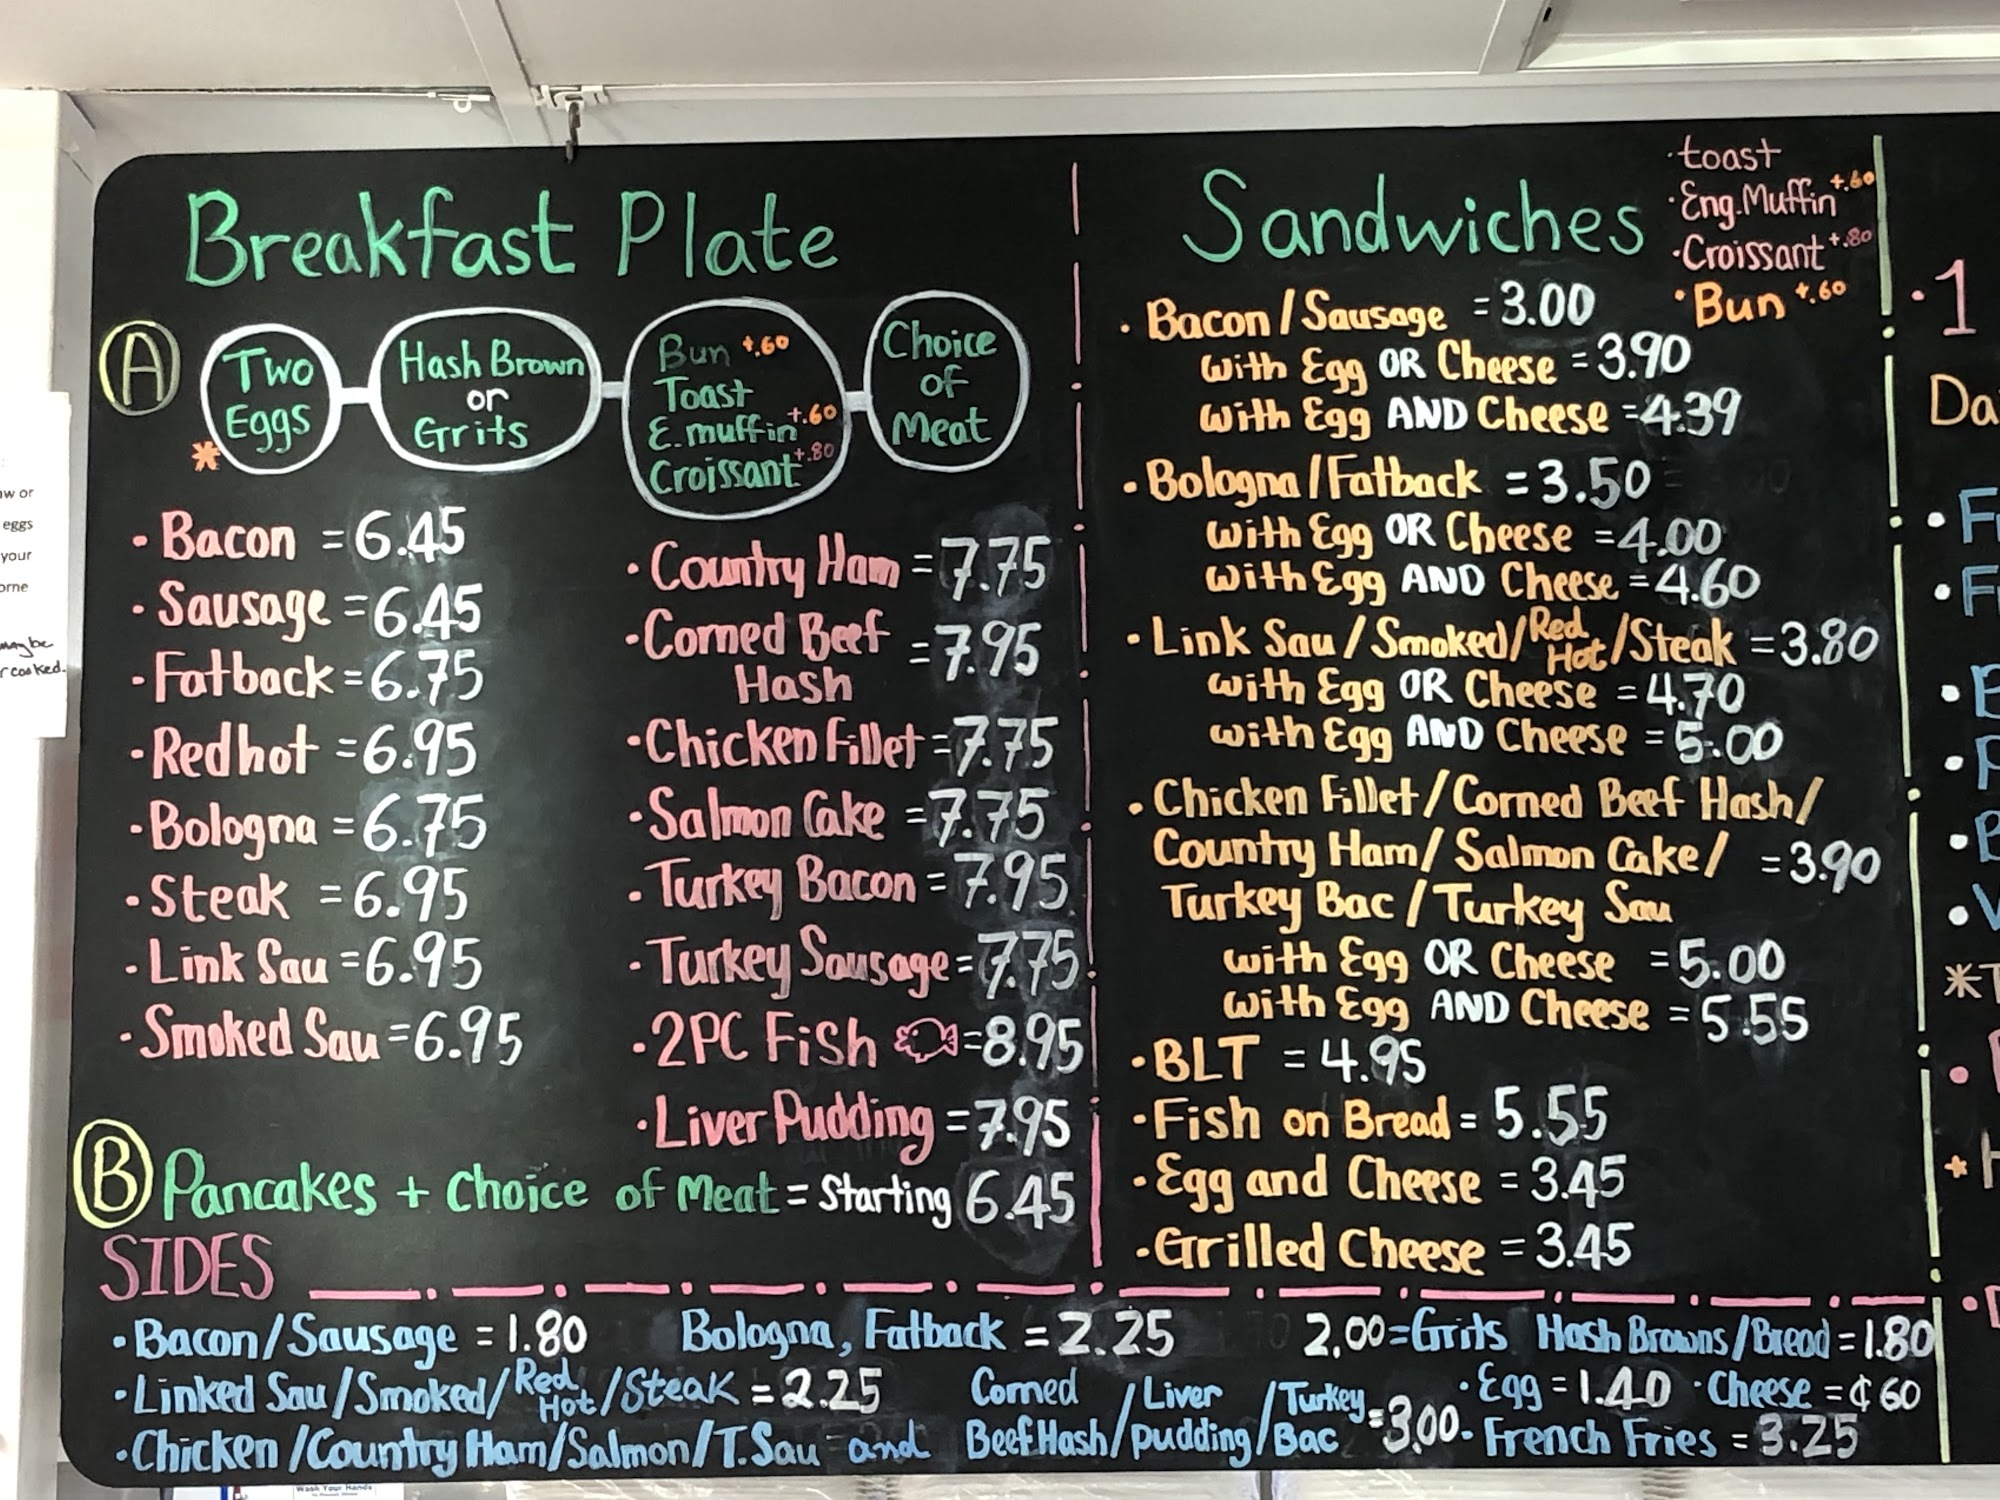 Breakfast Plate
A
Two
Eggs
*
Hash Brown
or
Grits
Bun +.60
Toast
E. muffin +.60
Croissant +.80
Choice
of
Meat
· Bacon = 6.45
· Sausage = 6.45
· Fatback = 6.75
· Redhot = 6.95
· Bologna = 6.75
· Steak = 6.95
· Link Sau = 6.95
· Smoked Sau = 6.95
· Country Ham = 7.75
· Corned Beef
Hash = 7.95
· Chicken Fillet = 7.75
· Salmon Cake = 7.75
· Turkey Bacon = 7.95
· Turkey Sausage = 7.75
· 2PC Fish = 8.95
· Liver Pudding = 7.95
B Pancakes + Choice of Meat = Starting 6.45
Sandwiches
· toast
· Eng. Muffin +.60
· Croissant +.80
· Bun +.60
· Bacon / Sausage = 3.00
with Egg OR Cheese = 3.90
with Egg AND Cheese = 4.39
· Bologna / Fatback = 3.50
with Egg OR Cheese = 4.00
with Egg AND Cheese = 4.60
· Link Sau / Smoked / Red Hot / Steak = 3.80
with Egg OR Cheese = 4.70
with Egg AND Cheese = 5.00
· Chicken Fillet / Corned Beef Hash /
Country Ham / Salmon Cake / = 3.90
Turkey Bac / Turkey Sau
with Egg OR Cheese = 5.00
with Egg AND Cheese = 5.55
· BLT = 4.95
· Fish on Bread = 5.55
· Egg and Cheese = 3.45
· Grilled Cheese = 3.45
SIDES
· Bacon / Sausage = 1.80 Bologna, Fatback = 2.25 2.00 = Grits Hash Browns / Bread = 1.80
· Linked Sau / Smoked / Red Hot / Steak = 2.25 · Egg = 1.40 · Cheese = ¢ 60
· Chicken / Country Ham / Salmon / T. Sau and Corned Beef Hash / Liver pudding / Turkey Bac = 3.00 · French Fries = 3.25
· 1
Da
eggs
your
may be
cooked.
Wash Your Hands